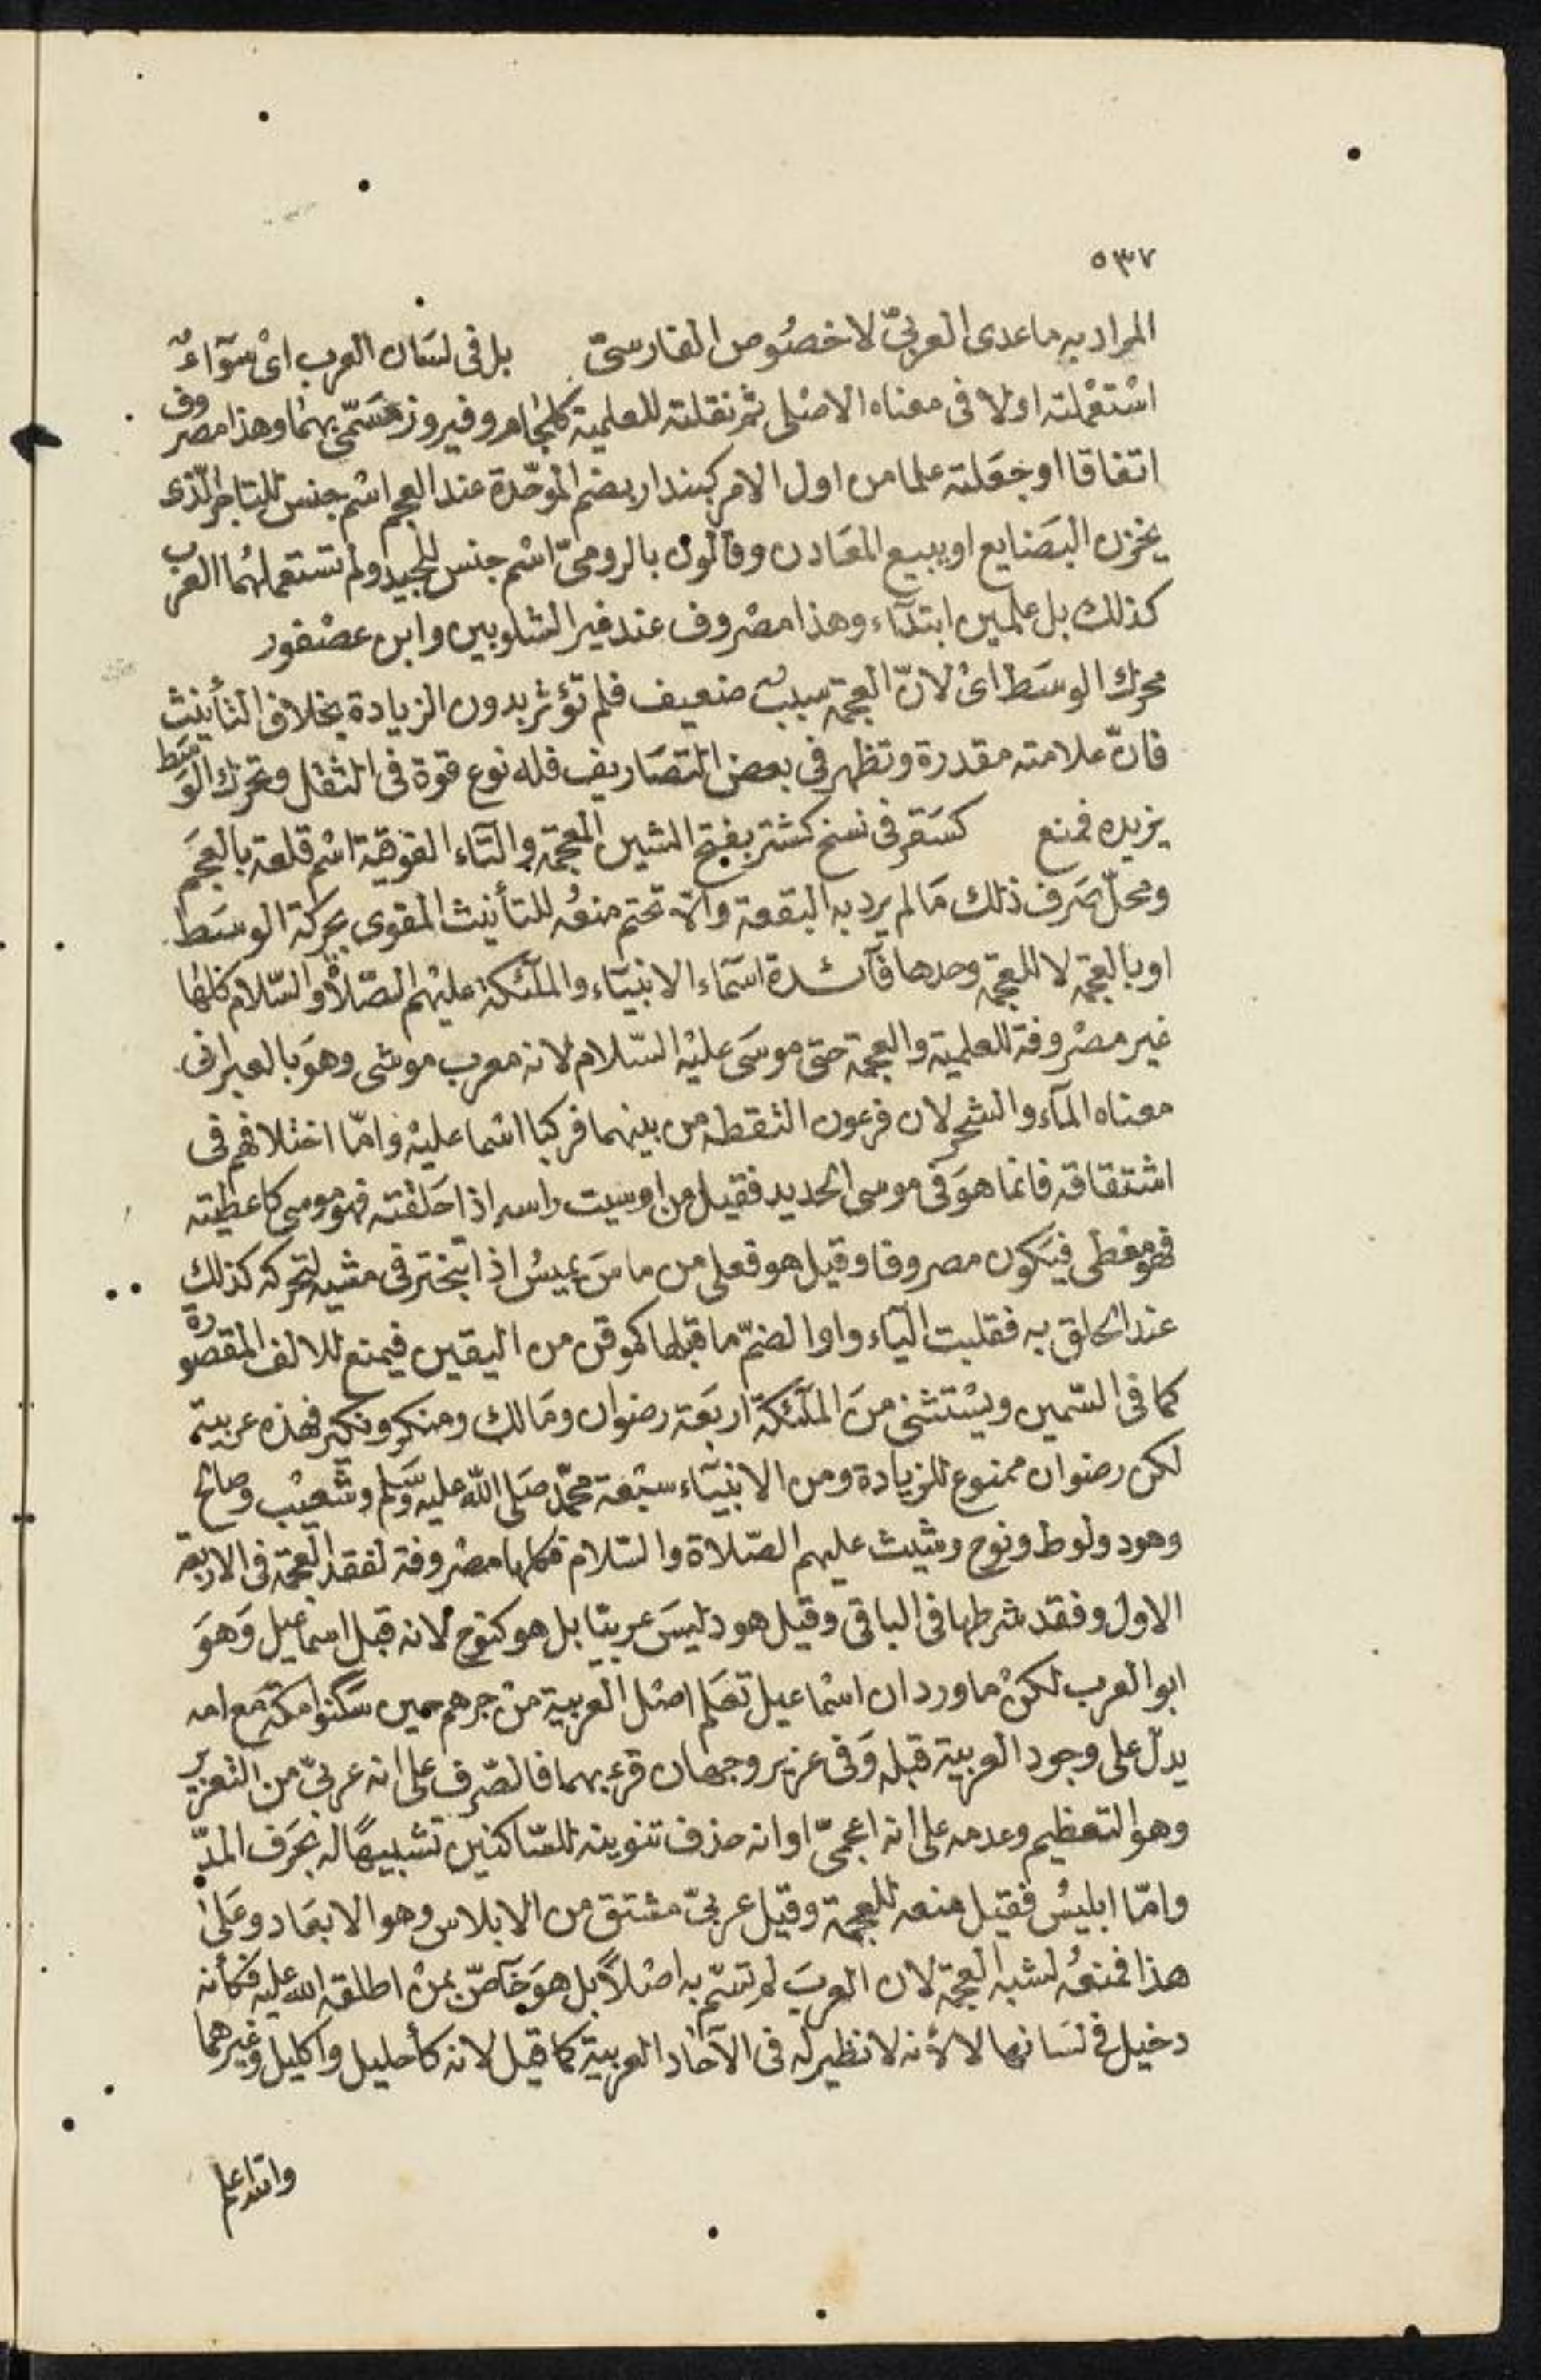 ٥٣٧
المراد به ما عدى العربىّ لا خصُوص الفارسىّ بل فى لسَان العرب اىْ سَوآءٌ
اسْتعْملته اولا فى معناه الاصْلى ثم نقلته للعلمية كلجام وفيروز مسَمّى بهما وهذا مصروف
اتفاقا او جعَلته علما من اول الامر كبندار بضم الموحّدة عند العجم اسْم جنس للتاجر الّذى
يخزن البَضايع او يبيع المعَادن وقالون بالرومىّ اسْم جنس للجيد ولم تستعملهُما العرب
كذلك بل علمين ابتدآء وهذا مصْروف عند غير الشلوبين وابن عصْفور
محرك الوسَط اىْ لانّ العجمة سببٌ ضعيف فلم تؤثر بدون الزيادة بخلاف التأنيث
فانّ علامته مقدرة وتظهر فى بعض التصَاريف فله نوع قوة فى الثقل وتحرك الوسَط
يزيده فمنع كسَقر فى نسخ كشتر بفتح الشين المعجمة والتآء الفوقية اسْم قلعة بالعجَم
ومحلّ صَرف ذلك مَا لم يرد به البقعة والّا تحتم منعُه للتأنيث المقوى بحركة الوسَط
او بالعجمة لا للعجمة وحدها فآئدة اسَمآء الانبيَآء والملآئكة عليْهم الصّلاة والسّلام كلها
غير مصْروفة للعلمية والعجمة حتى موسَى عليْه السّلام لانه معرب موشى وهوَ بالعبرانى
معناه المآء والشجر لان فرعون التقطه من بينهما فركبا اسْما عليْه وامّا اختلافهم فى
اشتقاقه فانما هوَ فى موسى الحديد فقيل من اوسيت راسه اذا حَلقته فهو موسى كاعطيته
فهو معطى فيَكون مصروفا وقيل هو فعلى من ماسَ يميسُ اذا تبختر فى مشيه لتحركه كذلك
عند الحلق به فقلبت اليآء واوا لضمّ ما قبلها كموقن من اليقين فيمنع للالف المقصورة
كما فى السّمين ويسْتثنى منَ الملآئكة اربَعة رضوان ومَالك ومنكر ونكير فهذه عربية
لكن رضوان ممنوع للزيادة ومن الانبيَآء سبْعة محمّد صَلى اللّه عليه وسَلم وشعيْب وصالح
وهود ولوط ونوح وشيث عليهم الصّلاة والسّلام فكلها مصْروفة لفقد العجمة فى الاربعة
الاول وفقد شرطها فى الباقى وقيل هود ليسَ عربيّا بل هو كنوح لانه قبل اسْماعيل وَهوَ
ابو العرب لكنْ ما ورد ان اسْماعيل تعَلم اصْل العربية منْ جرهم حين سَكنوا مكة مَع امه
يدلّ على وجود العربية قبله وَفى عزير وجهان قرئ بهما فالصّرف على انه عربىّ من التعزير
وهو التعظيم وعدمه على انه اعجمىّ او انه حذف تنوينه للسّاكنين تشبيهًا له بحَرف المدّ
وامّا ابليسُ فقيل منعه للعجمة وقيل عربىّ مشتق من الابلاس وهو الابعَاد وعَلى
هذا فمنعُه لشبه العجمة لان العربَ لم تسَمّ به اصْلاً بل هوَ خآصّ بمنْ اطلقه اللّه عليه فكأنه
دخيل فى لسَانها لا لأنه لا نظير له فى الآحَاد العربية كما قيل لانه كأحليل واكليل وغيرهما
والله اعلم